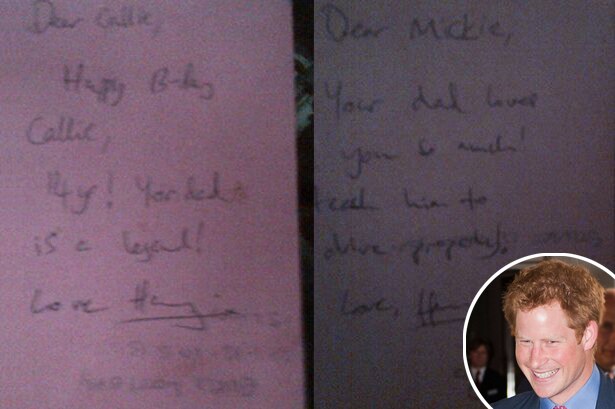 Dear Callie,
Happy B-day
Callie,
14 yr! Your dad
is a legend!
Love
Dear Mickie,
Your dad loves
you so much!
teach him to
drive properly!
Love,